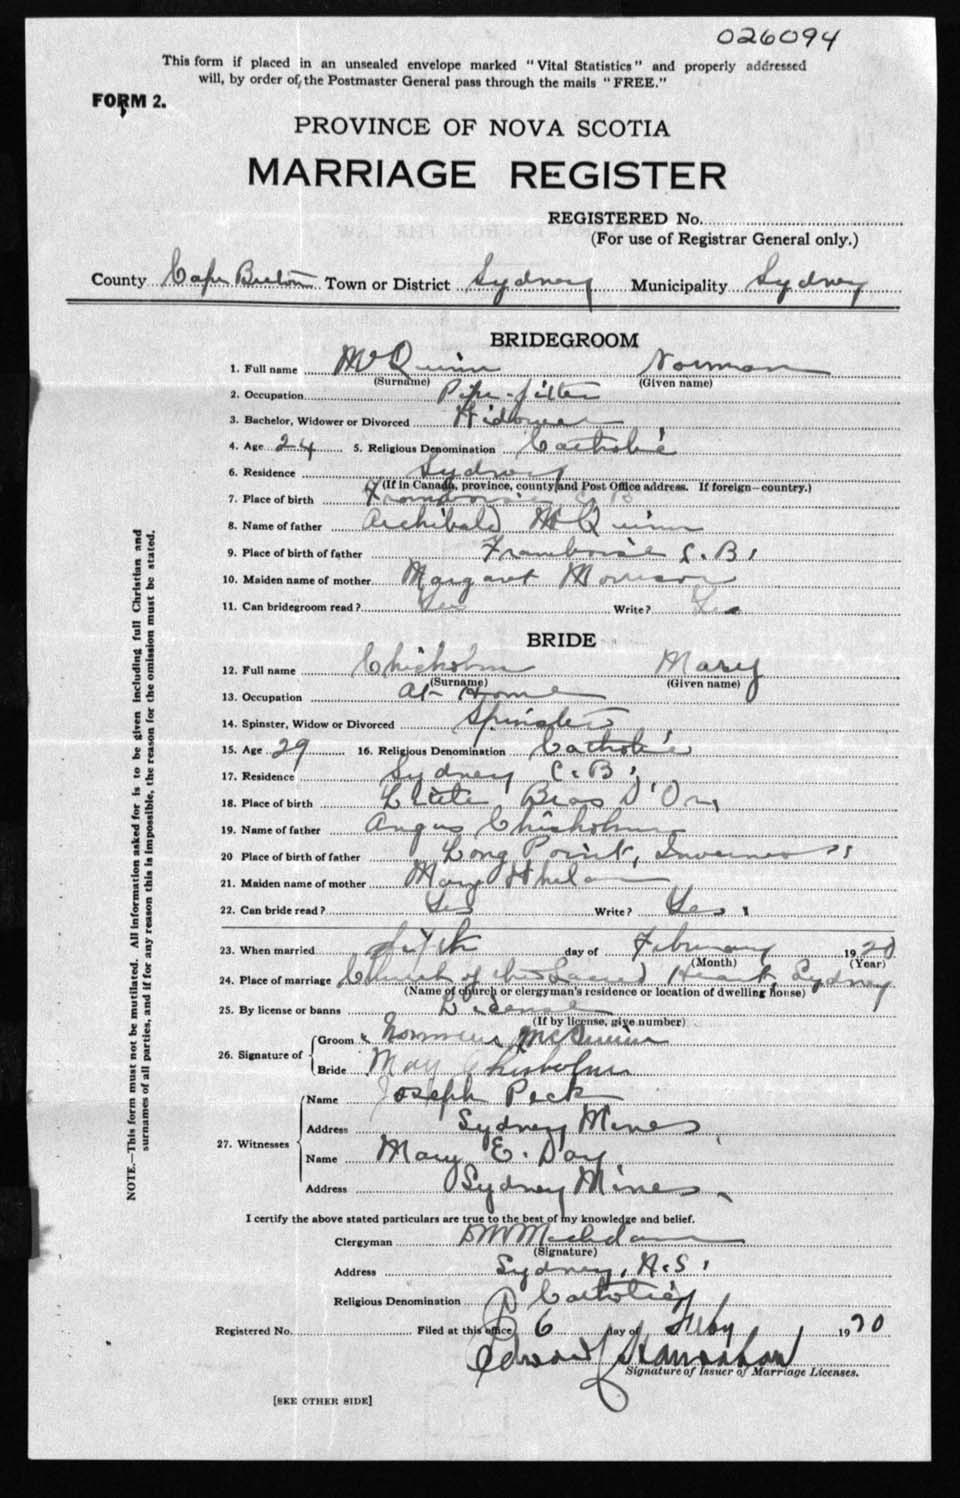 026094
This form if placed in an unsealed envelope marked "Vital Statistics" and properly addressed
will, by order of, the Postmaster General pass through the mails "FREE."
FORM 2.
PROVINCE OF NOVA SCOTIA
MARRIAGE REGISTER
REGISTERED No.
(For use of Registrar General only.)
County Cape Breton Town or District Sydney Municipality Sydney
BRIDEGROOM
1. Full name McQuinn Norman
(Surname) (Given name)
2. Occupation Pipe-fitter
3. Bachelor, Widower or Divorced Widower
4. Age 24 5. Religious Denomination Catholic
6. Residence Sydney
(If in Canada, province, county and Post Office address. If foreign—country.)
7. Place of birth Framboise C B
8. Name of father Archibald McQuinn
9. Place of birth of father Framboise C.B.
10. Maiden name of mother Margaret Morrison
11. Can bridegroom read? Yes Write? Yes
BRIDE
12. Full name Chisholm Mary
(Surname) (Given name)
13. Occupation At Home
14. Spinster, Widow or Divorced Spinster
15. Age 29 16. Religious Denomination Catholic
17. Residence Sydney C.B.
18. Place of birth Little Bras D'Or,
19. Name of father Angus Chisholm
20 Place of birth of father Long Point, Inverness
21. Maiden name of mother Mary Whelan
22. Can bride read? Yes Write? Yes.
23. When married day of February 1920
(Month) (Year)
24. Place of marriage Church of the Sacred Heart, Sydney
(Name of church or clergyman's residence or location of dwelling house)
25. By license or banns License
(If by license, give number)
26. Signature of Groom Norman McQuinn
Bride May Chisholm
27. Witnesses Name Joseph Peck
Address Sydney Mines.
Name Mary E. Day
Address Sydney Mines.
I certify the above stated particulars are true to the best of my knowledge and belief.
Clergyman
(Signature)
Address Sydney, N.S.
Religious Denomination Catholic
Registered No. Filed at this office 6 day of Feby 1920
Edward
Signature of Issuer of Marriage Licenses.
[SEE OTHER SIDE]
NOTE.—This form must not be mutilated. All information asked for is to be given including full Christian and
surnames of all parties, and if for any reason this is impossible, the reason for the omission must be stated.